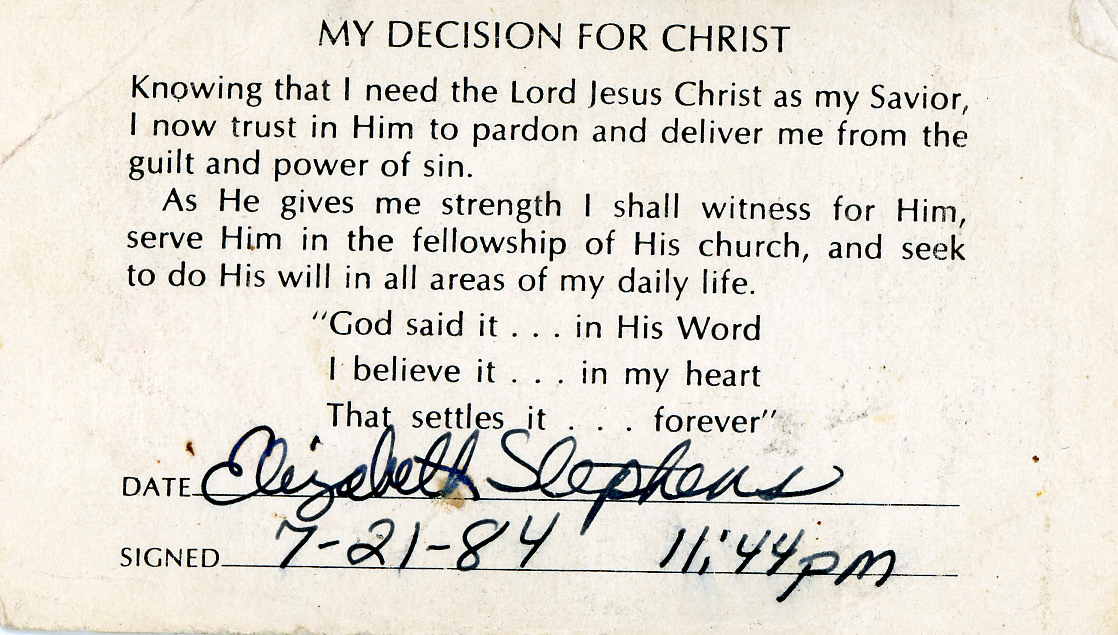 MY DECISION FOR CHRIST
Knowing that I need the Lord Jesus Christ as my Savior,
I now trust in Him to pardon and deliver me from the
guilt and power of sin.
As He gives me strength I shall witness for Him,
serve Him in the fellowship of His church, and seek
to do His will in all areas of my daily life.
"God said it . . . in His Word
I believe it . . . in my heart
That settles it . . . forever"
DATE Elizabeth Stephens
SIGNED 7-21-84 11:44pm